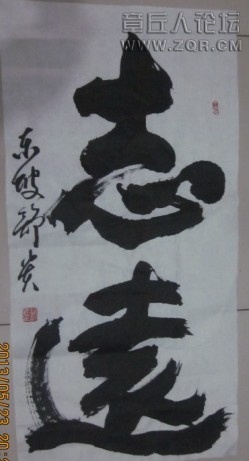 章丘人论坛
www.ZQR.CM
志
遠
东坡
2013/05/23 20: